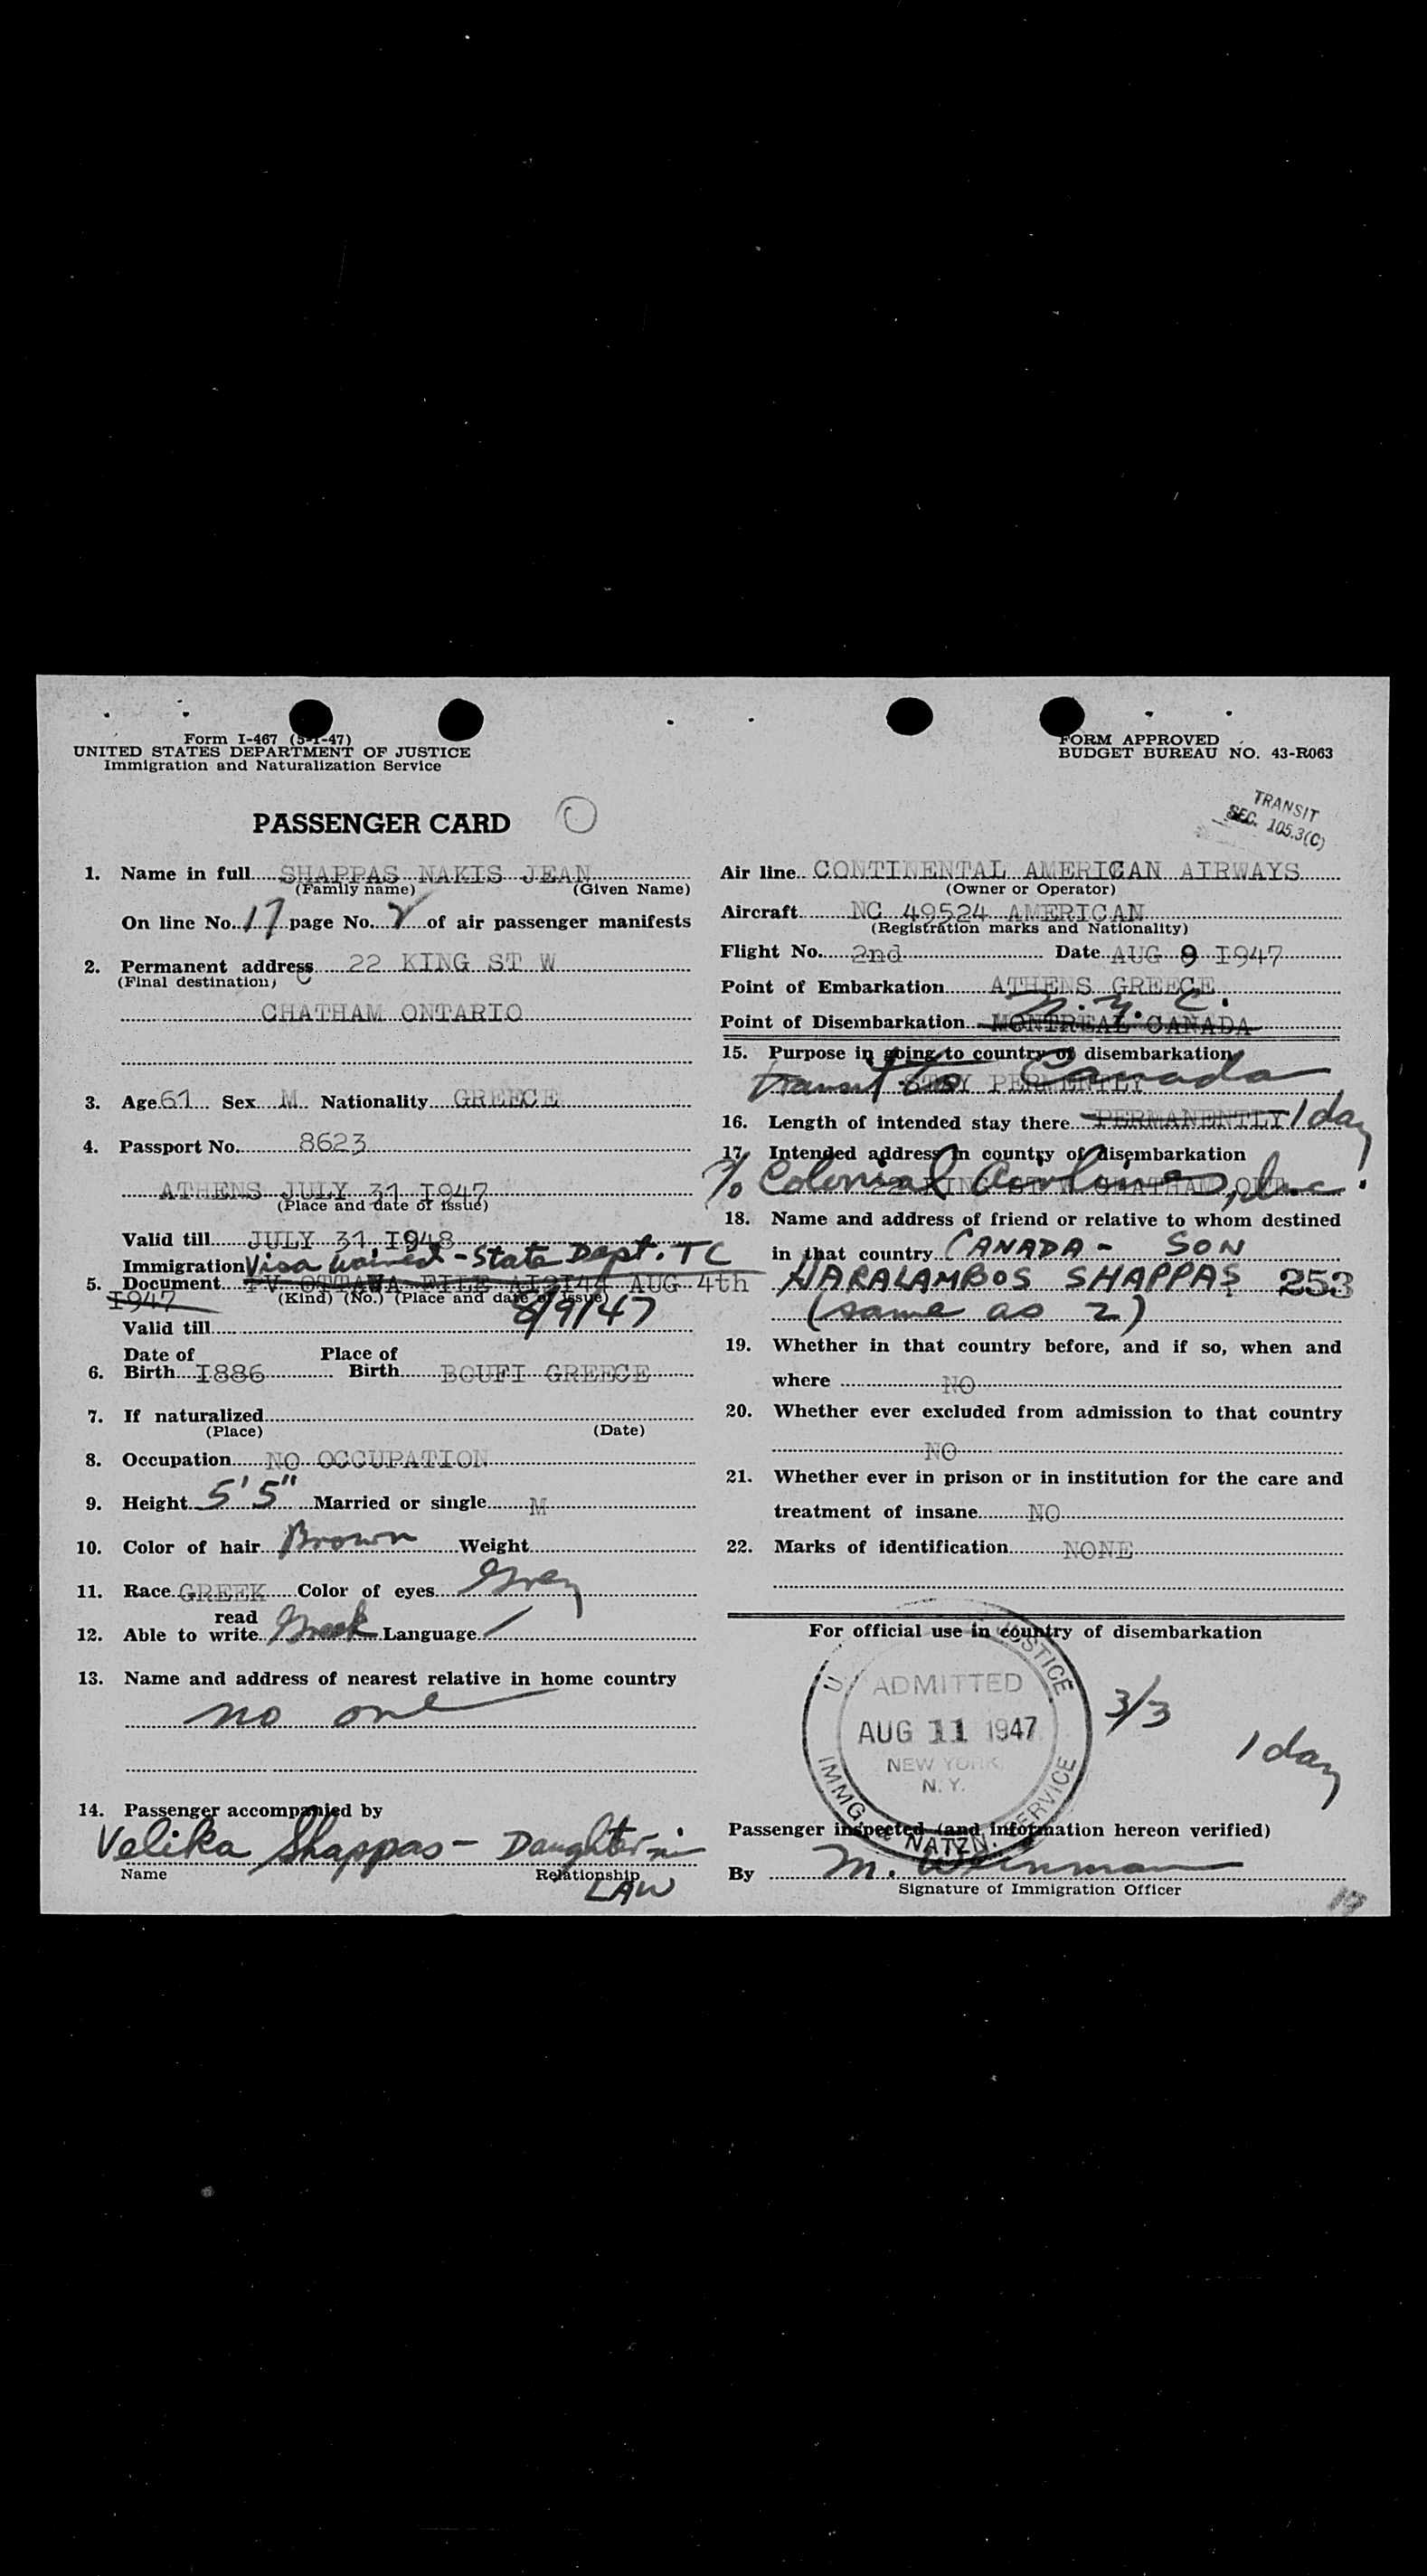 Form I-467 (5-1-47)
UNITED STATES DEPARTMENT OF JUSTICE
Immigration and Naturalization Service
FORM APPROVED
BUDGET BUREAU NO. 43-R063
TRANSIT
SEC. 105.3(C)
PASSENGER CARD
1. Name in full SHAPPAS NAKIS JEAN
(Family name) (Given Name)
On line No. 17 page No. 2 of air passenger manifests
2. Permanent address 22 KING ST W
(Final destination)
CHATHAM ONTARIO
3. Age 61 Sex M Nationality GREECE
4. Passport No. 8623
ATHENS JULY 31 I947
(Place and date of issue)
Valid till JULY 31 I948
Immigration Visa waived - State Dept. TC
5. Document PV OTTAWA FILE AI2I44 AUG 4th
I947 (Kind) (No.) (Place and date of issue)
8/9/47
Valid till
Date of Place of
6. Birth I886 Birth BOUFI GREECE
7. If naturalized
(Place) (Date)
8. Occupation NO OCCUPATION
9. Height 5' 5" Married or single M
10. Color of hair Brown Weight
11. Race GREEK Color of eyes Grey
read
12. Able to write Greek Language
13. Name and address of nearest relative in home country
no one
14. Passenger accompanied by
Velika Shappas - Daughter-in
Name Relationship
LAW
Air line CONTINENTAL AMERICAN AIRWAYS
(Owner or Operator)
Aircraft NC 49524 AMERICAN
(Registration marks and Nationality)
Flight No. 2nd Date AUG 9 I947
Point of Embarkation ATHENS GREECE
N.Y.C.
Point of Disembarkation MONTREAL CANADA
15. Purpose in going to country of disembarkation
transit to Canada
STAY PERMENTLY
16. Length of intended stay there PERMANENTLY 1 day
17. Intended address in country of disembarkation
c/o Colonial Airlines, Inc.
22 KING ST W CHATHAM ONT
18. Name and address of friend or relative to whom destined
in that country CANADA - SON
HARALAMBOS SHAPPAS 253
(same as 2)
19. Whether in that country before, and if so, when and
where NO
20. Whether ever excluded from admission to that country
NO
21. Whether ever in prison or in institution for the care and
treatment of insane NO
22. Marks of identification NONE
For official use in country of disembarkation
ADMITTED
AUG 11 1947
NEW YORK,
N. Y.
U JUSTICE
IMMG & NATZN. SERVICE
3/3
1 day
Passenger inspected (and information hereon verified)
By M. Weinman
Signature of Immigration Officer